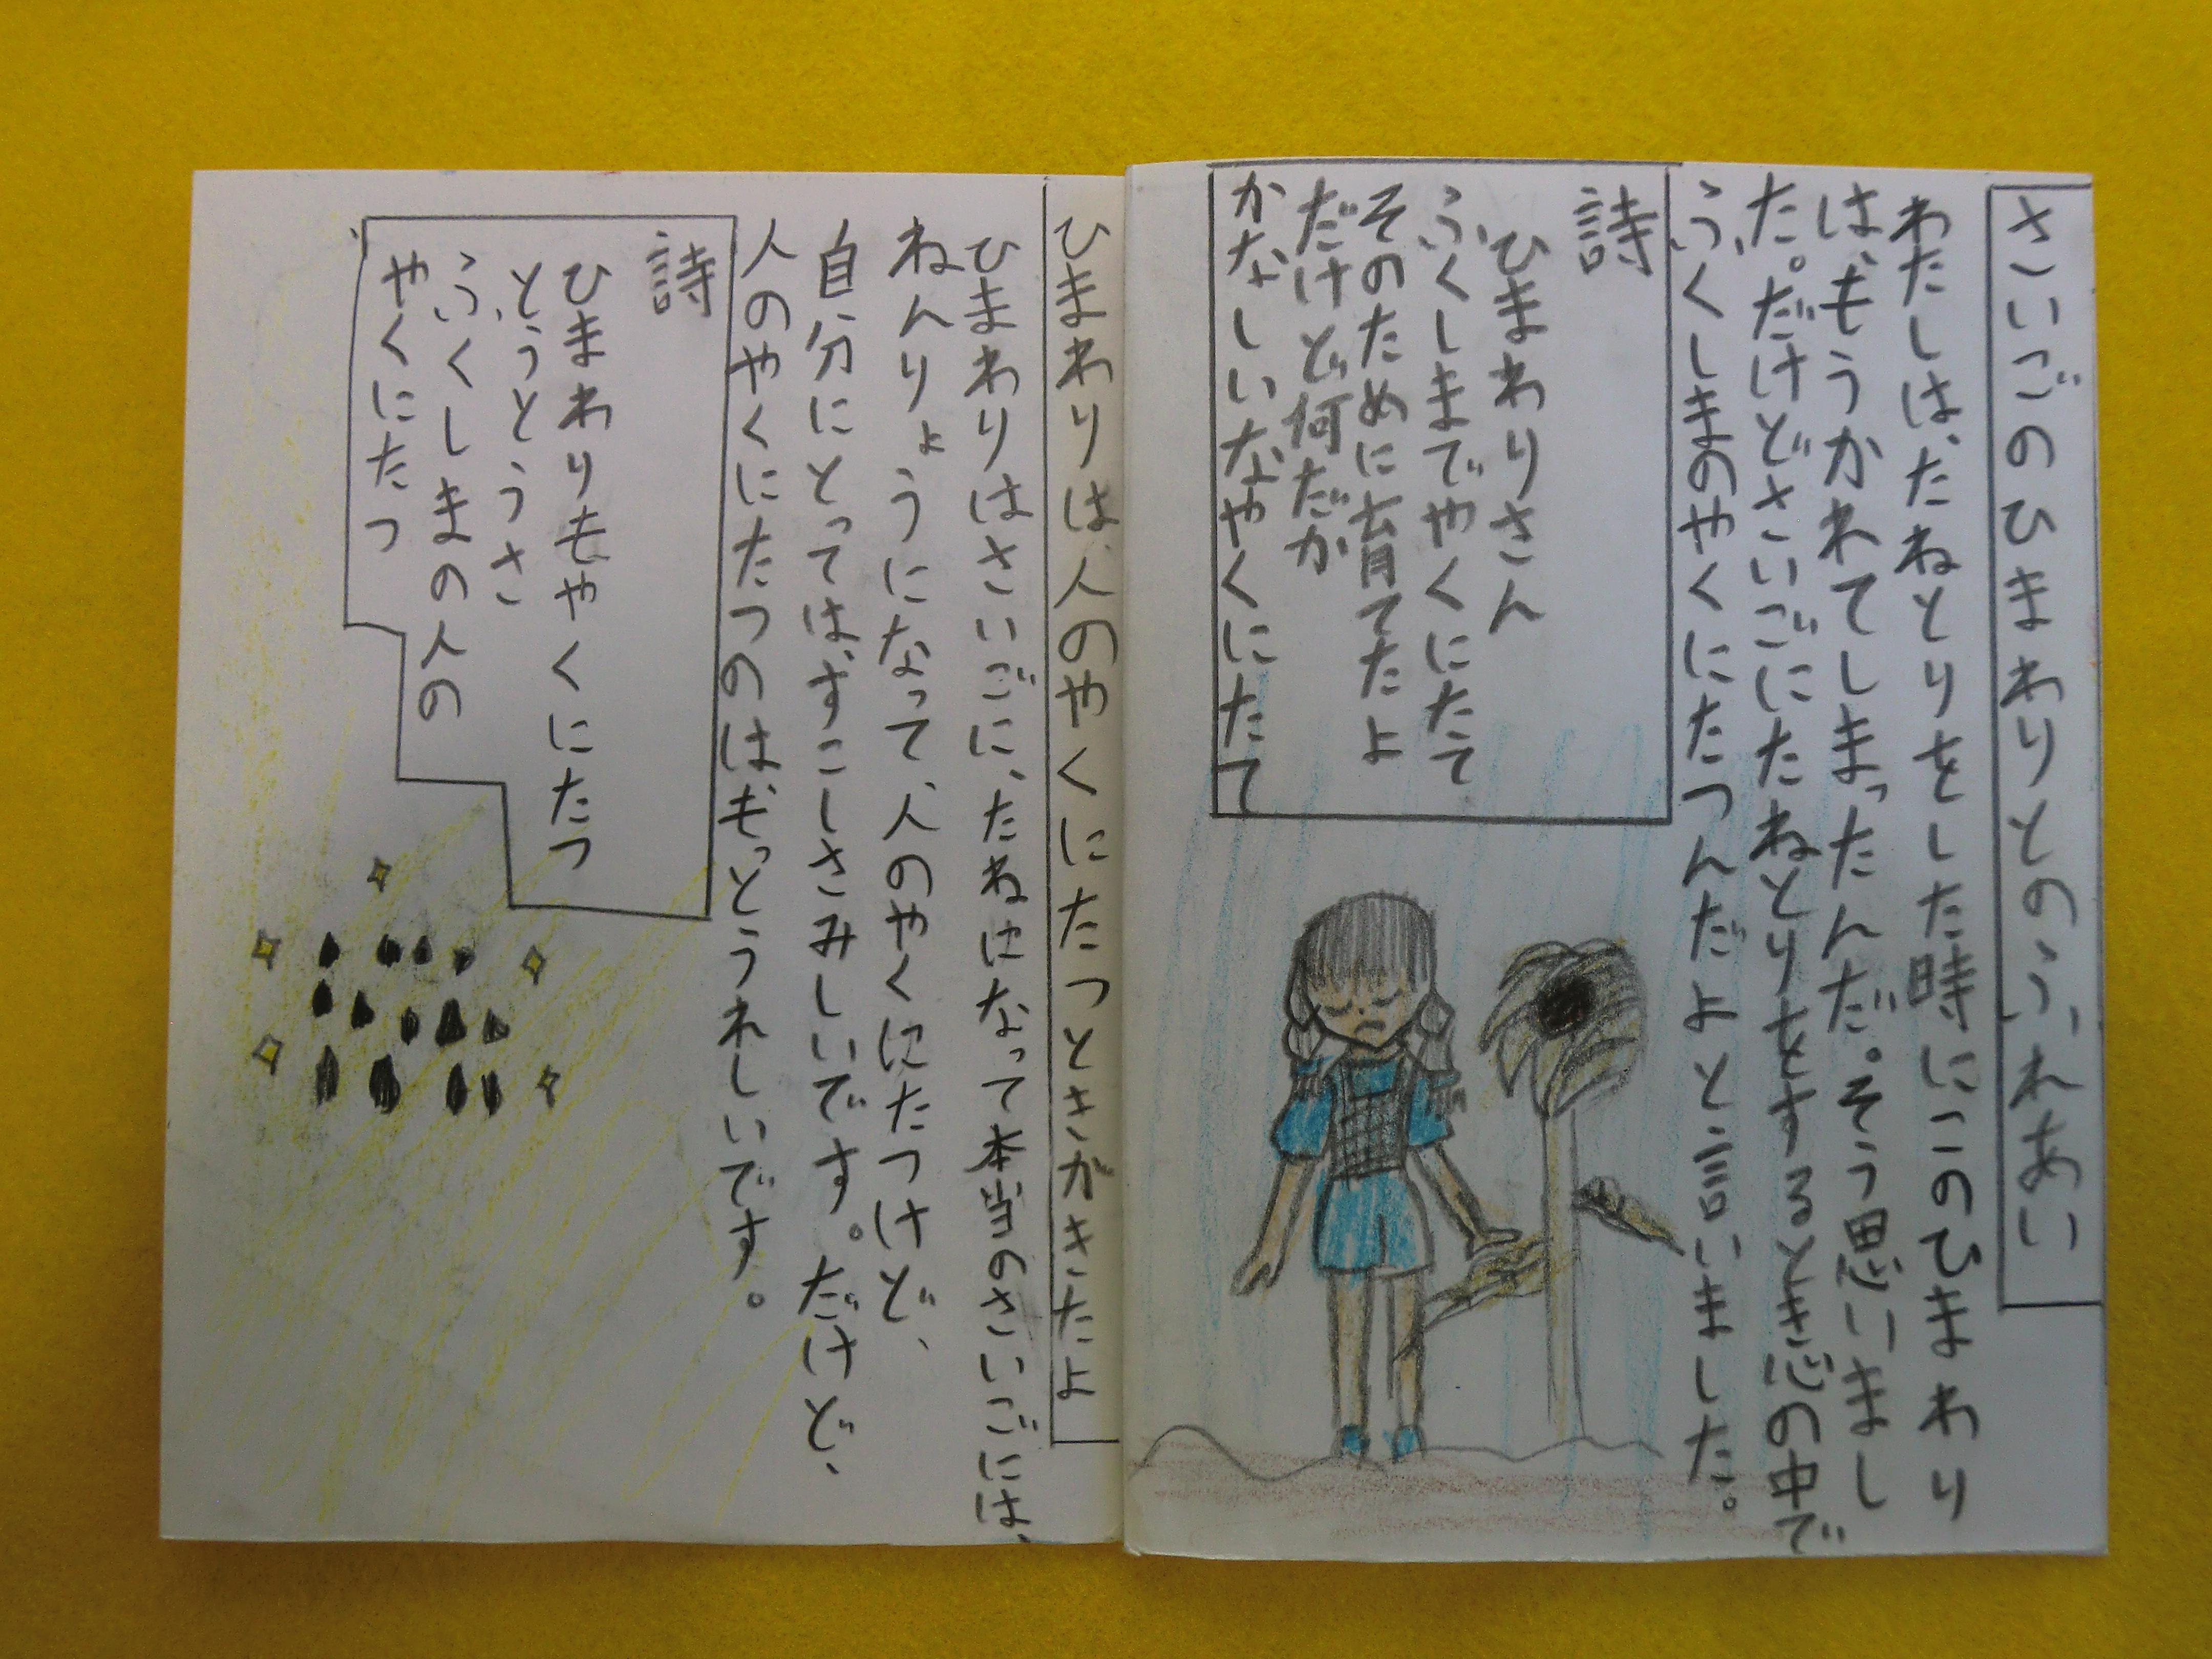 さいごのひまわりとのふれあい
わたしは、たねとりをした時にこのひまわり
は、もうかわてしまったんだ。そう思いまし
た。だけどさいごにたねとりをするとき心の中で
ふくしまのやくにたつんだよと言いました。
詩
ひまわりさん
ふくしまでやくにたて
そのために育てたよ
だけど何だか
かなしいなやくにたて
ひまわりは、人のやくにたつときがきたよ
ひまわりはさいごに、たねはなって本当のさいごには、
ねんりょうになって、人のやくにたつけど、
自分にとっては、すこしさみしいです。だけど、
人のやくにたつのはもっとうれしいです。
詩
ひまわりもやくにたつ
とうとうさ
ふくしまの人の
やくにたつ